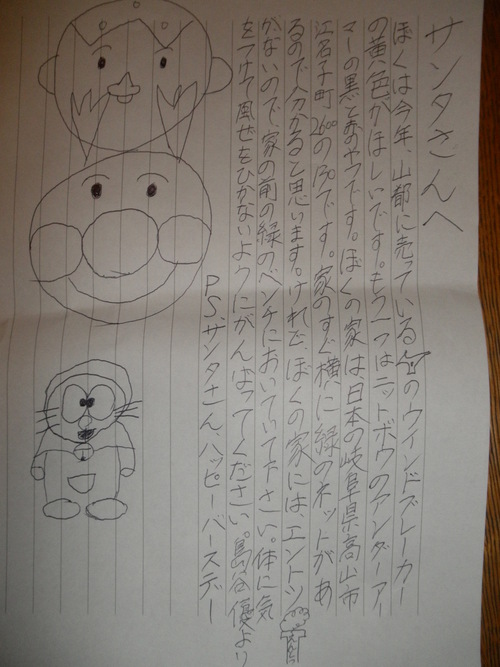 サンタさんへ
ぼくは今年、山都に売っているのウインドブレーカー
の黄色がほしいです。もう一つはニットボウのアンダーアー
マーの黒と赤のやつです。ぼくの家は日本の岐阜県高山市
江名子町2600の130です。家のすぐ横に緑のネットがあ
るので分かると思います。けれど、ぼくの家には、エントツ
がないので、家の前の緑のベンチにおいていて下さい。体に気
をつけて風ぜをひかないようにがんばってください。島谷優より
PS.サンタさん、ハッピーバースデー